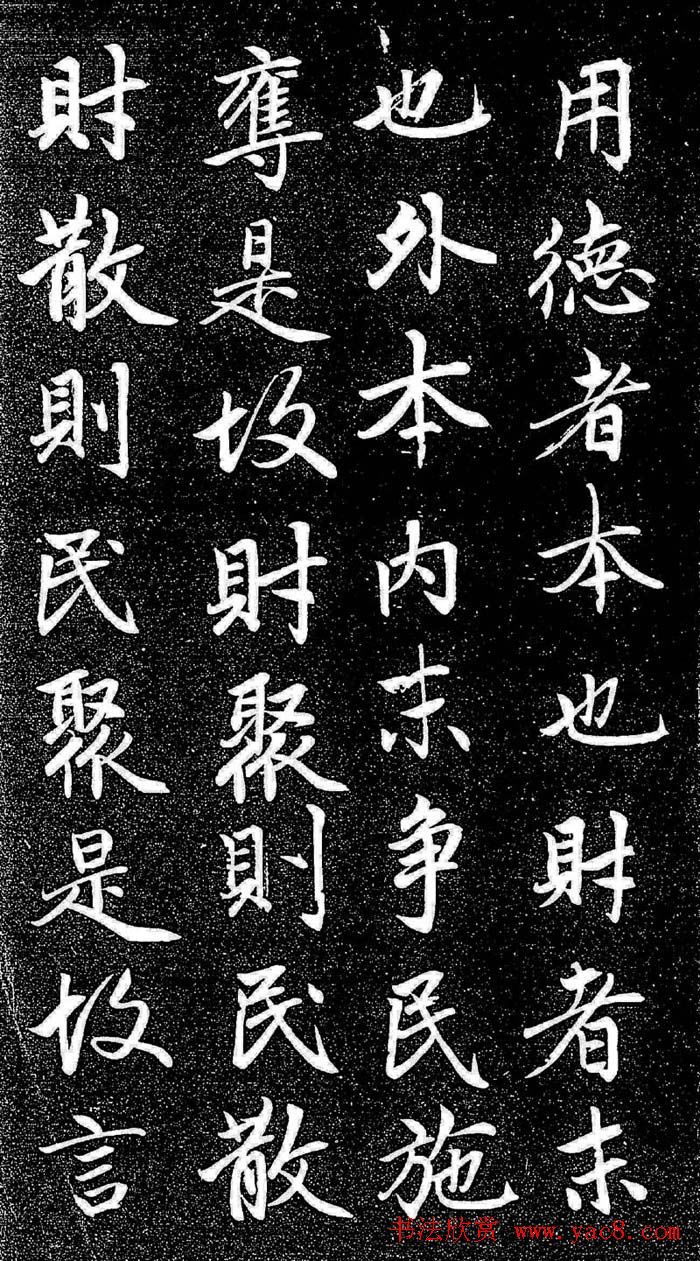 用德者本也財者末
也外本内末争民施
奪是故財聚則民散
財散則民聚是故言
书法欣赏 www.yac8.com